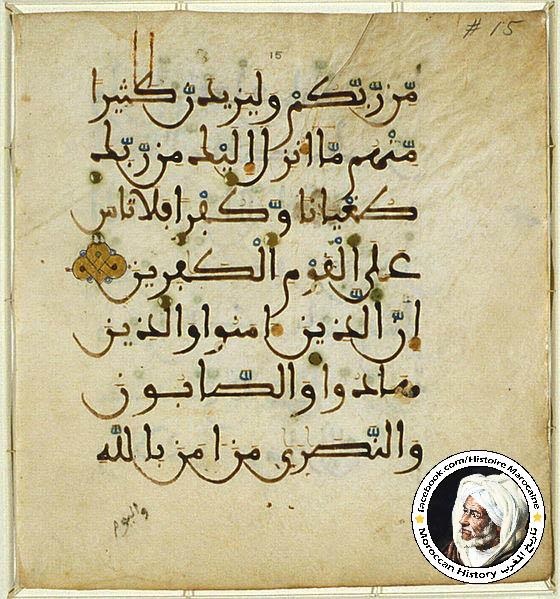 # 15
15
من ربكم وليزيدن كثيرا
منهم ما انزل اليك من ربك
طغيانا وكفرا فلا تاس
على القوم الكفرين
ان الذين امنوا والذين
هادوا والصابون
والنصرى من امن بالله
واليوم
facebook.com/Histoire Marocaine
Moroccan History تاريخ المغرب